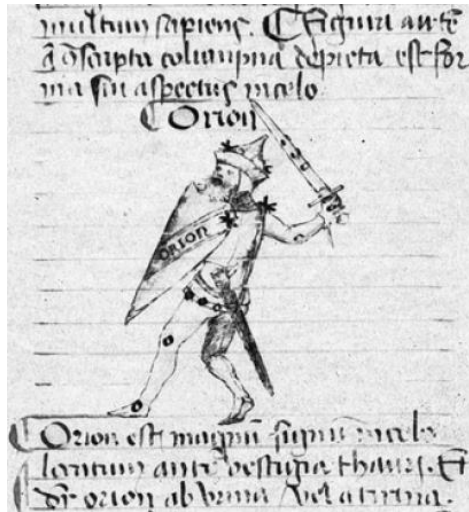 multum sapiens. Figura autē
ꝯscripta columpna depicta est for
ma siu aspectus in celo
Orion
ORION
Orion est magnū signū in celo
locatum ante vestigia thauri. Et
dr̄ orion ab vrina vel a